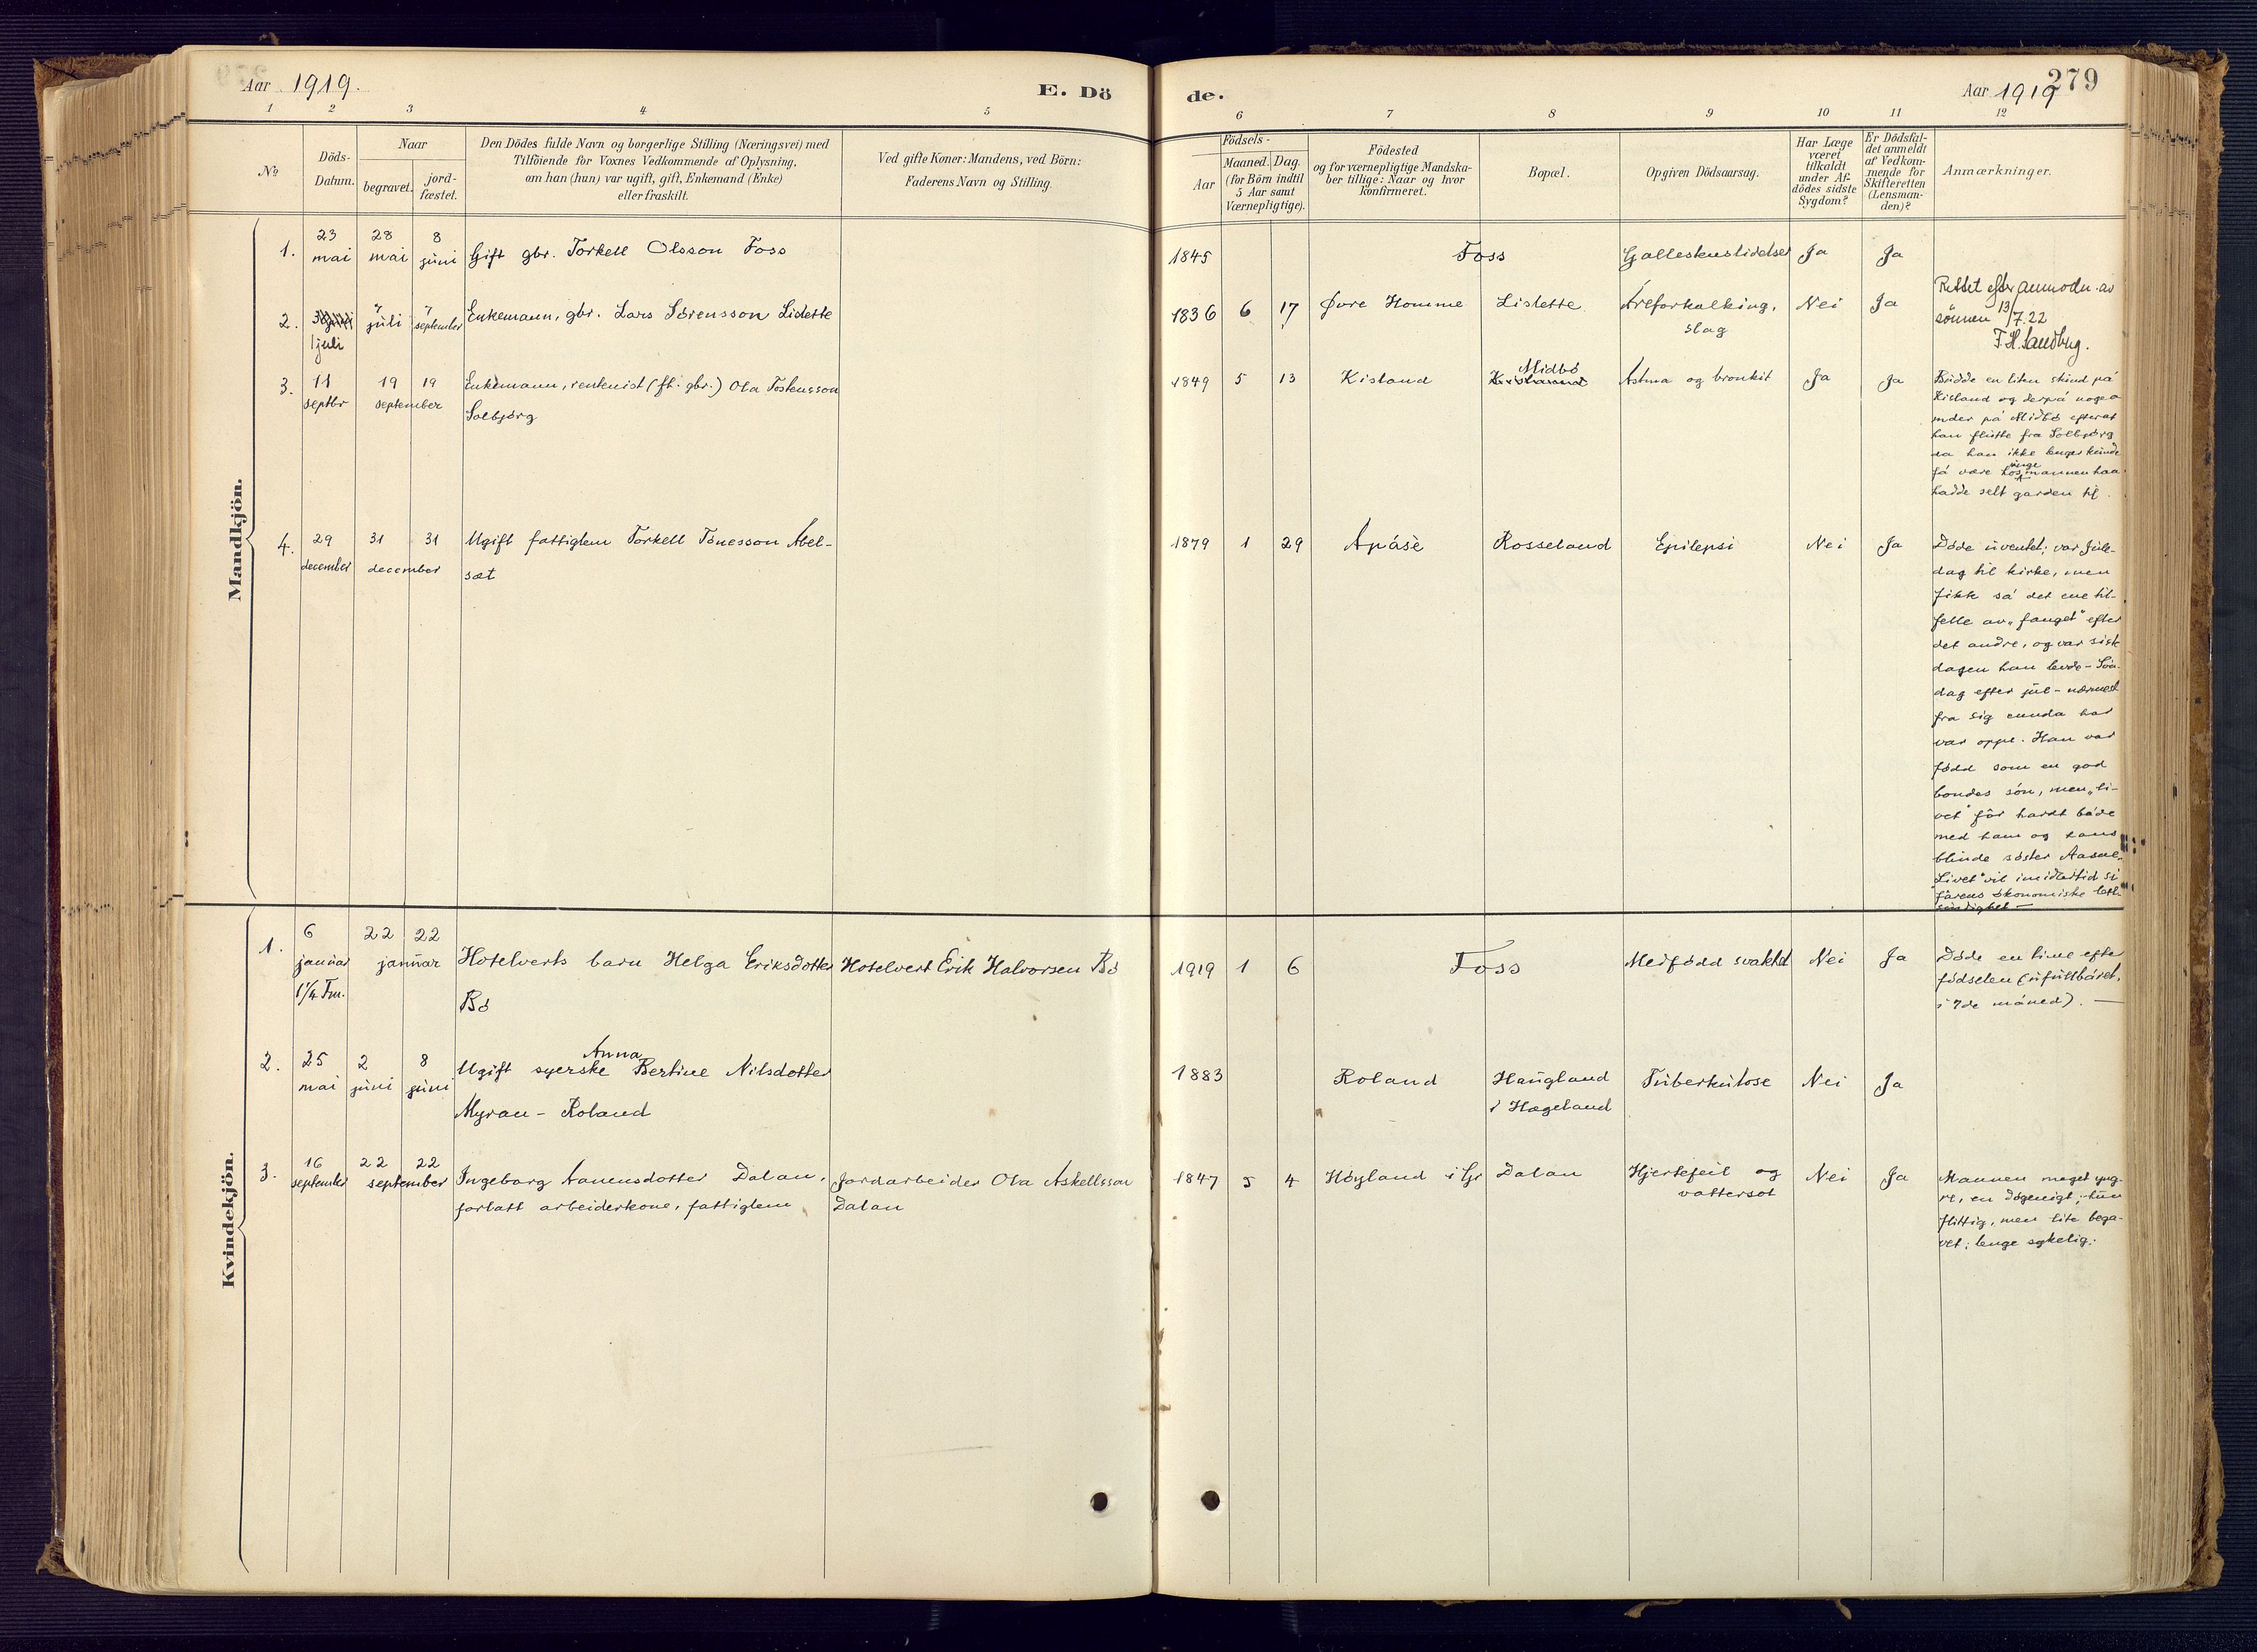 Aar 1919.
E. Dö
de.
Aar 1919
279
1 2 3 4 5 6 7 8 9 10 11 12
№
Döds-
Datum.
Naar
begravet.
jord-
fæstet.
Den Dödes fulde Navn og borgerlige Stilling (Næringsvei) med
Tilföiende for Voxnes Vedkommende af Oplysning,
om han (hun) var ugift, gift, Enkemand (Enke)
eller fraskilt.
Ved gifte Koner: Mandens, ved Börn:
Faderens Navn og Stilling.
Födsels-
Aar
Maaned. Dag.
(for Börn indtil
5 Aar samt
Værnepligtige).
Födested
og for værnepligtige Mandska-
ber tillige: Naar og hvor
konfirmeret.
Bopæl.
Opgiven Dödsaarsag.
Har Læge
været
tilkaldt
under Af-
dödes sidste
Sygdom?
Er Dödsfal-
det anmeldt
af Vedkom-
mende for
Skifteretten
(Lensman-
den)?
Anmærkninger.
Mandkjön.
1.
23
mai
28
mai
8
juni
Gift gbr. Torkell Olsson Foss
1845
Foss
Ja
Ja
2.
1 juli
7
juli
7
september
Enkemann, gbr. Lars Sørensson Lislette
1836 6 17
Øvre Homme
Lislette
Åreforkalking,
slag
Nei
Ja
Rettet efter anmodn. av
sønnen 13/7.22
F.H. Sandbug.
3.
11
septbr
19 19
september
Enkemann, rentenist (fh. gbr.) Ola Tostensson
Solbjørg
1849 5 13
Kisland
Midbø
Astma og bronkit
Ja
Ja
Budde en liten stund på
Kisland og derpå nogen
mder på Midbø efterat
han flutte fra Solbjørg
da han ikke lenger kunde
få være hos unge mannen han
hadde selt garden til.
4.
29
december
31 31
december
Ugift fattiglem Torkell Tønesson Abel-
sæt
1879 1 29
Åpåsè
Rosseland
Epilepsi
Nei
Ja
Døde uventet; var jule-
dag til kirke, men
fikk så det ene til-
felle av "fanget" efter
det andre, og var sist
dagen han levde - Søn-
dag efter jul - nærmest
fra sig ennda han
var oppe. Han var
født som en god
bondes søn, men "li-
vet" fór hardt både
med ham og hans
blinde søster Aasne.
"Livet" vil imidlertid si
farens økonomiske lett-
sindighet —
Kvindekjön.
1.
6
januar
1 1/4 Fm.
22 22
januar
Hotelverts barn Helga Eriksdotter
Bø
Hotelvert Erik Halvorsen Bø
1919 1 6
Foss
Medfødd svakhet
Nei
Ja
Døde en time efter
fødselen (ufullbåret,
i 7de måned). —
2.
25
mai
2
juni
8
juni
Ugift syerske Anna Bertine Nilsdotter
Myran - Roland
1883
Roland
Haugland
i Hægeland
Tuberkulose
Nei
Ja
3.
16
september
22 22
september
Ingeborg Aanensdotter Dalan,
forlatt arbeiderkone, fattiglem
Jordarbeider Ola Askellsson
Dalan
1847 5 4
Høyland i Gr
Dalan
Hjertefeil og
vattersot
Nei
Ja
Mannen meget yng-
re, en døgenigt; hun
flittig, men lite bega-
vet; lenge sykelig.